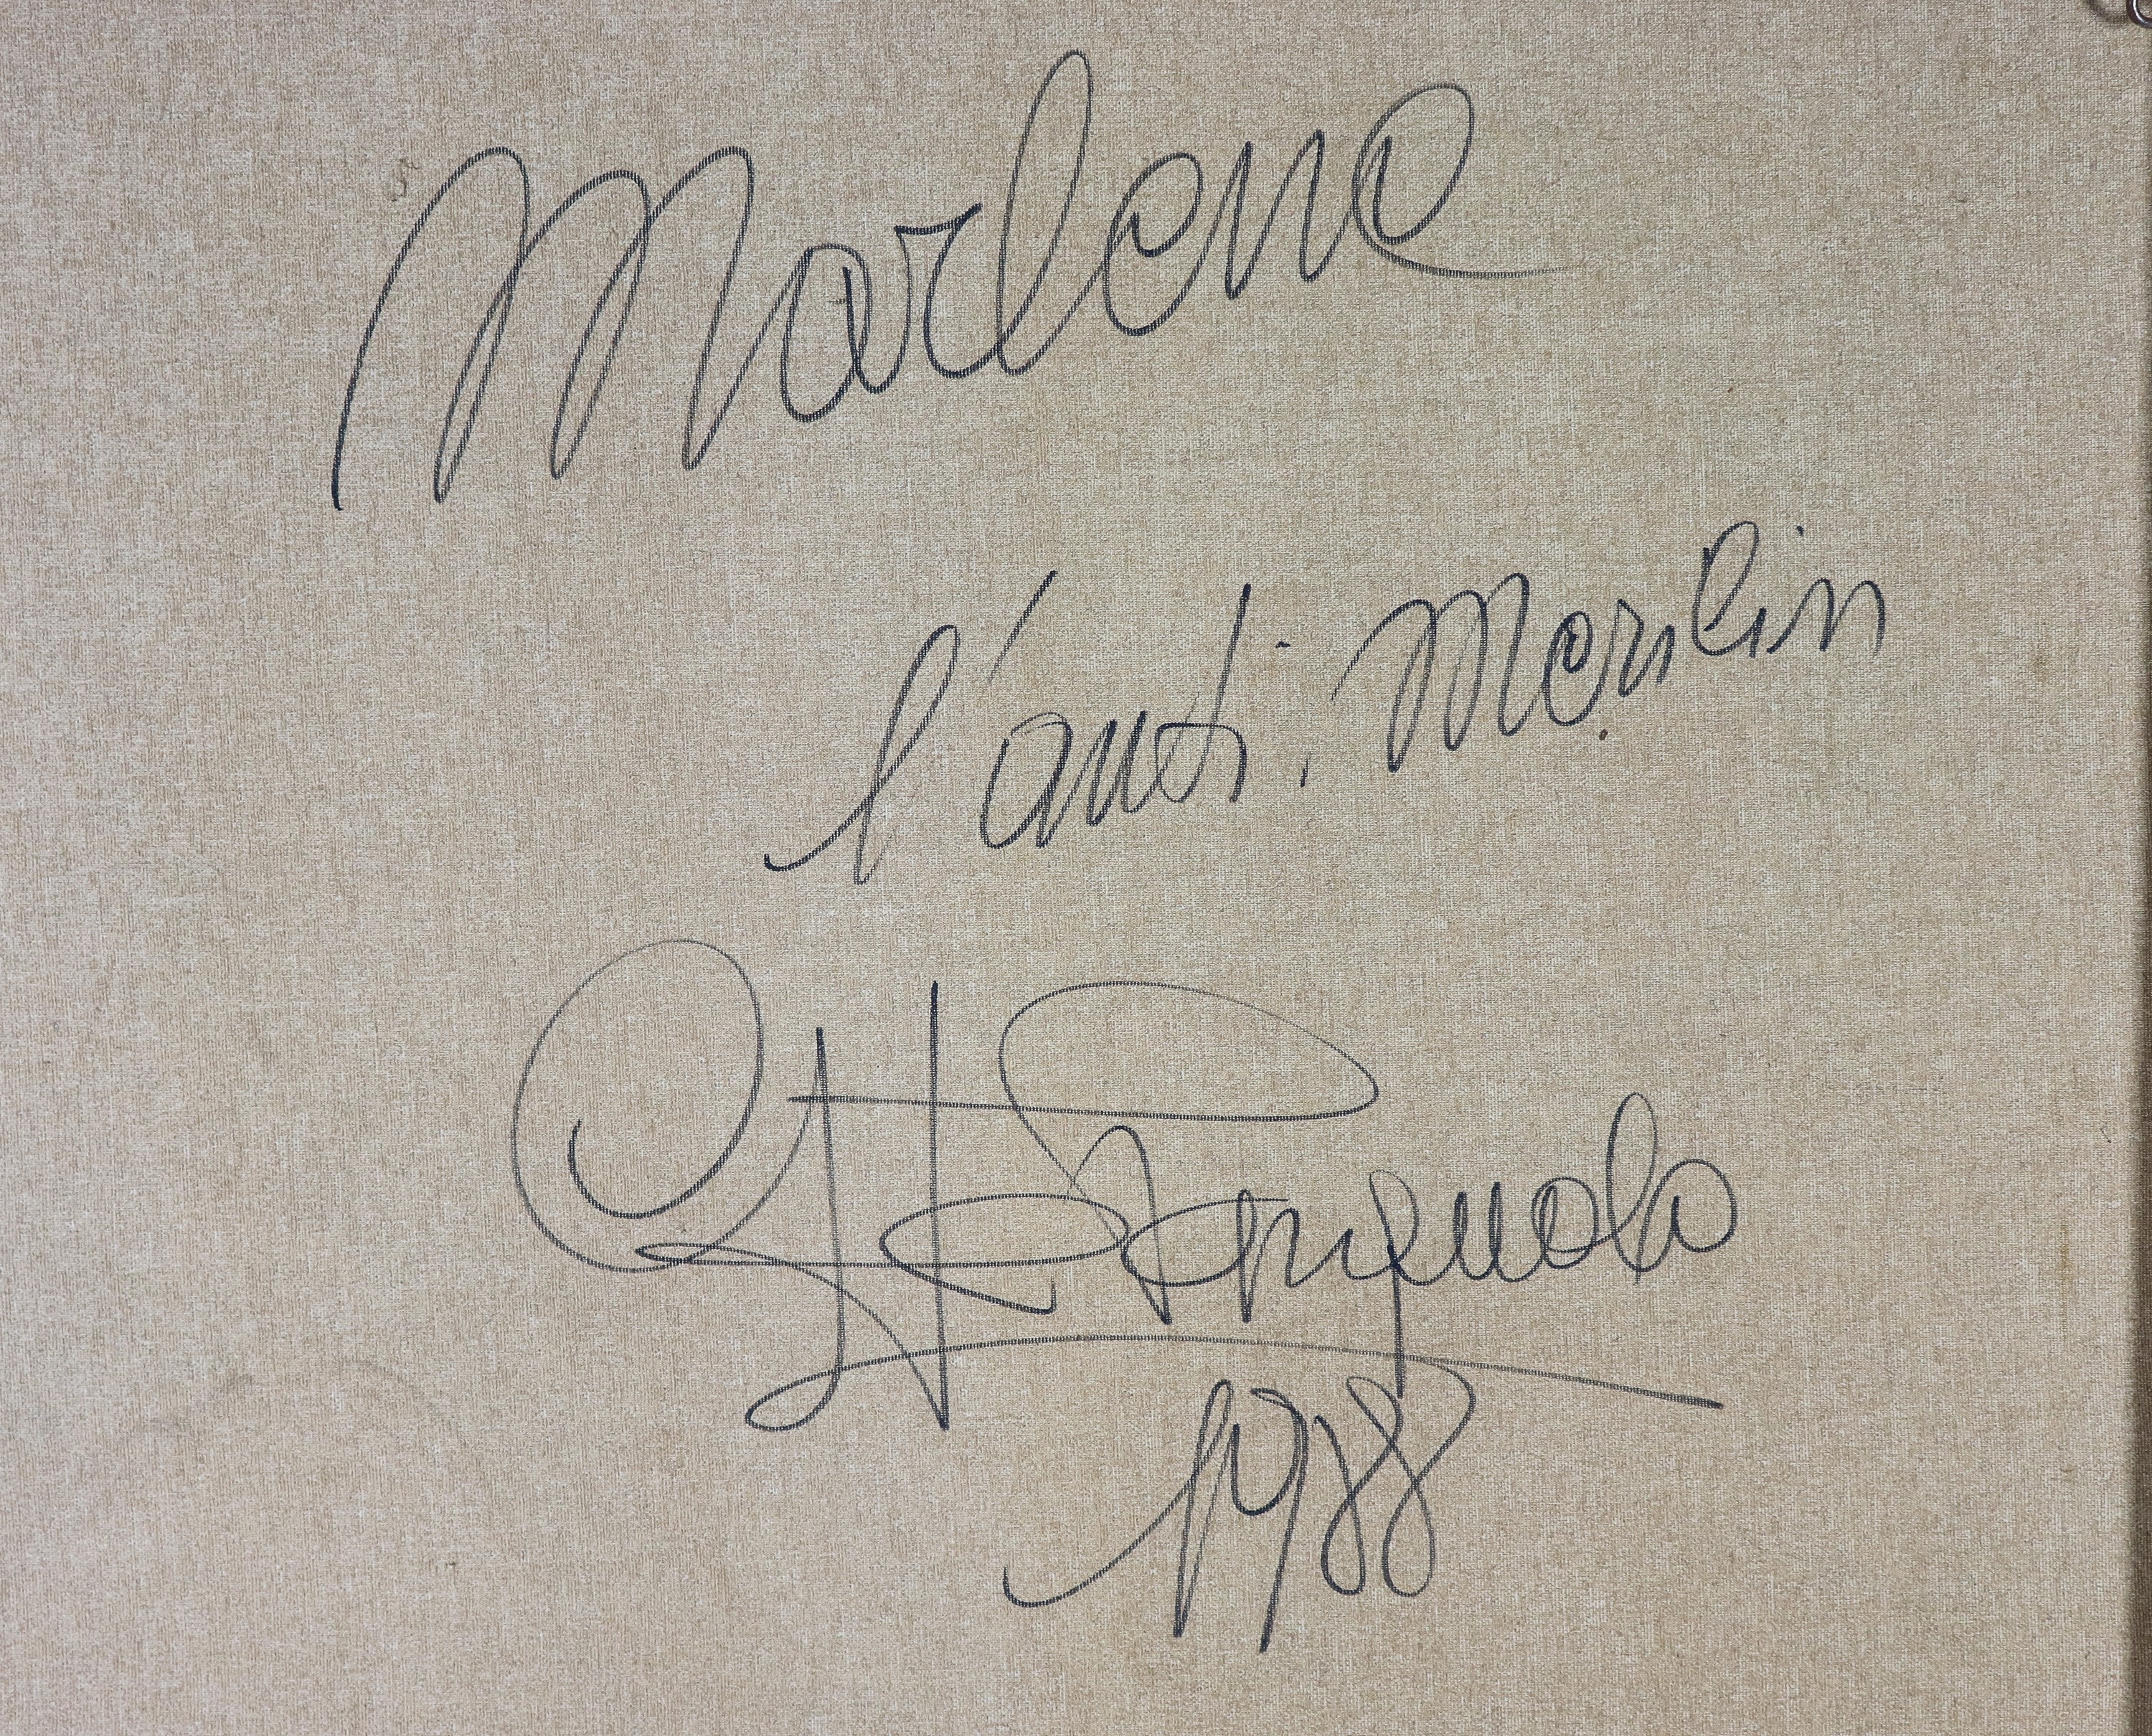 Marlene
l'anti. Merlin
1988